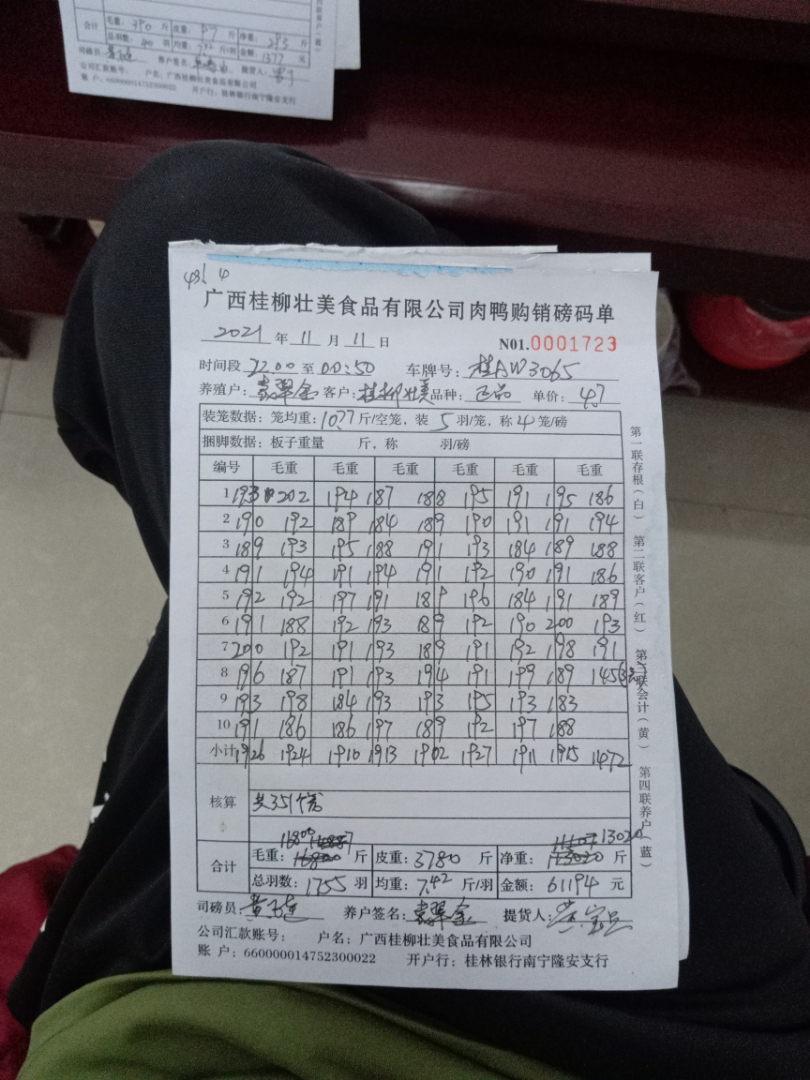 合计 毛重: 斤 皮重: 斤 净重: 293 斤
总羽数: 40 羽 均重: 斤/羽 金额: 1377 元
司磅员: 养户签名: 提货人:
公司汇款账号: 户名:广西桂柳壮美食品有限公司
账 户:660000014752300022 开户行:桂林银行南宁隆安支行
广西桂柳壮美食品有限公司肉鸭购销磅码单
2021 年 11 月 11 日 N01.0001723
时间段 22:00 至 00:50 车牌号: 桂AW3065
养殖户: 客户: 桂柳壮美 品种: 正品 单价: 4.7
装笼数据: 笼均重: 10.77 斤/空笼, 装 5 羽/笼, 称 4 笼/磅
捆脚数据: 板子重量 斤, 称 羽/磅
编号 毛重 毛重 毛重 毛重 毛重 毛重
1 193 202 194 187 188 195 191 195 186
2 190 192 189 184 189 190 191 191 194
3 189 193 195 188 191 193 184 189 188
4 191 194 191 194 191 192 190 191 186
5 192 192 197 191 189 196 184 191 189
6 191 188 192 193 189 192 190 200 193
7 200 192 191 193 189 191 192 198 191
8 196 187 191 193 194 191 199 189 145
9 193 198 184 193 193 195 193 183
10 191 186 186 197 189 192 197 188
小计 1926 1924 1910 1913 1902 1927 1911 1915 1472
核算 共351个笼
合计 毛重: 16800 斤 皮重: 3780 斤 净重: 13020 斤
总羽数: 1755 羽 均重: 7.42 斤/羽 金额: 61194 元
司磅员: 养户签名: 提货人:
公司汇款账号: 户名:广西桂柳壮美食品有限公司
账 户:660000014752300022 开户行:桂林银行南宁隆安支行
第一联存根(白) 第二联客户(红) 第三联会计(黄) 第四联养户(蓝)